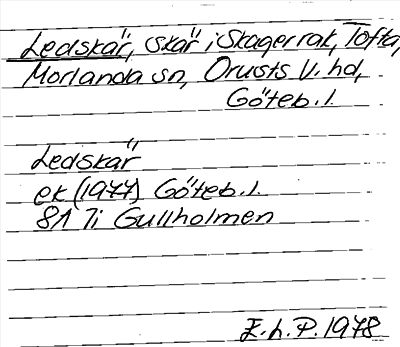 Ledskär, skär i Skagerrak, Tofta,
Morlanda sn, Orusts V. hd,
Göteb. l.
Ledskär
ek (1977) Göteb. l.
8A 7i Gullholmen
E. h. P. 1978